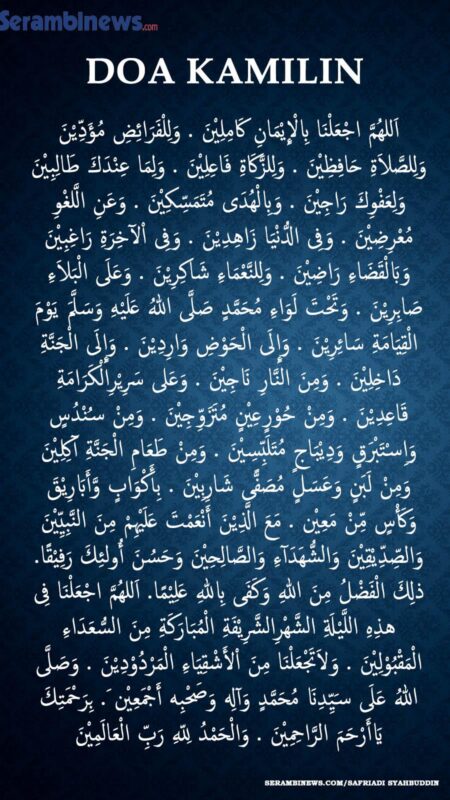 Serambinews.com
DOA KAMILIN
اَللهُمَّ اجْعَلْنَا بِالْإِيْمَانِ كَامِلِيْنَ . وَلِلْفَرَائِضِ مُؤَدِّيْنَ
وَلِلصَّلَاةِ حَافِظِيْنَ . وَلِلزَّكَاةِ فَاعِلِيْنَ . وَلِمَا عِنْدَكَ طَالِبِيْنَ
وَلِعَفْوِكَ رَاجِيْنَ . وَبِالْهُدَى مُتَمَسِّكِيْنَ . وَعَنِ اللَّغْوِ
مُعْرِضِيْنَ . وَفِى الدُّنْيَا زَاهِدِيْنَ . وَفِى اْلآخِرَةِ رَاغِبِيْنَ
وَبَالْقَضَاءِ رَاضِيْنَ . وَلِلنَّعْمَاءِ شَاكِرِيْنَ . وَعَلَى الْبَلَاءِ
صَابِرِيْنَ . وَتَحْتَ لَوَاءِ مُحَمَّدٍ صَلَّى اللهُ عَلَيْهِ وَسَلَّمَ يَوْمَ
الْقِيَامَةِ سَائِرِيْنَ . وَإِلَى الْحَوْضِ وَارِدِيْنَ . وَإِلَى الْجَنَّةِ
دَاخِلِيْنَ . وَمِنَ النَّارِ نَاجِيْنَ . وَعَلى سَرِيْرِالْكَرَامَةِ
قَاعِدِيْنَ . وَمِنْ حُوْرٍعِيْنٍ مُتَزَوِّجِيْنَ . وَمِنْ سُنْدُسٍ
وَاِسْتَبْرَقٍ وَدِيْبَاجٍ مُتَلَبِّسِيْنَ . وَمِنْ طَعَامِ الْجَنَّةِ آكِلِيْنَ
وَمِنْ لَبَنٍ وَعَسَلٍ مُصَفًّى شَارِبِيْنَ . بِأَكْوَابٍ وَّأَبَارِيْقَ
وَكَأْسٍ مِّنْ مَعِيْن . مَعَ الَّذِيْنَ أَنْعَمْتَ عَلَيْهِمْ مِنَ النَّبِيِّيْنَ
وَالصِّدِّيْقِيْنَ وَالشُّهَدَآءِ وَالصَّالِحِيْنَ وَحَسُنَ أُولئِكَ رَفِيْقًا.
ذلِكَ الْفَضْلُ مِنَ اللهِ وَكَفَى بِاللهِ عَلِيْمًا. اَللهُمَّ اجْعَلْنَا فِى
هذِهِ اللَّيْلَةِ الشَّهْرِالشَّرِيْفَةِ الْمُبَارَكَةِ مِنَ السُّعَدَاءِ
الْمَقْبُولِيْنَ . وَلَاتَجْعَلْنَا مِنَ اْلأَشْقِيَاءِ الْمَرْدُوْدِيْنَ . وَصَلَّى
اللهُ عَلَى سَيِّدِنَا مُحَمَّدٍ وَآلِهِ وَصَحْبِه أَجْمَعِيْن َ. بِرَحْمَتِكَ
يَاأَرْحَمَ الرَّاحِمِيْنَ . وَالْحَمْدُ لِلّهِ رَبِّ الْعَالَمِيْنَ
SERAMBINEWS.COM/SAFRIADI SYAHBUDDIN